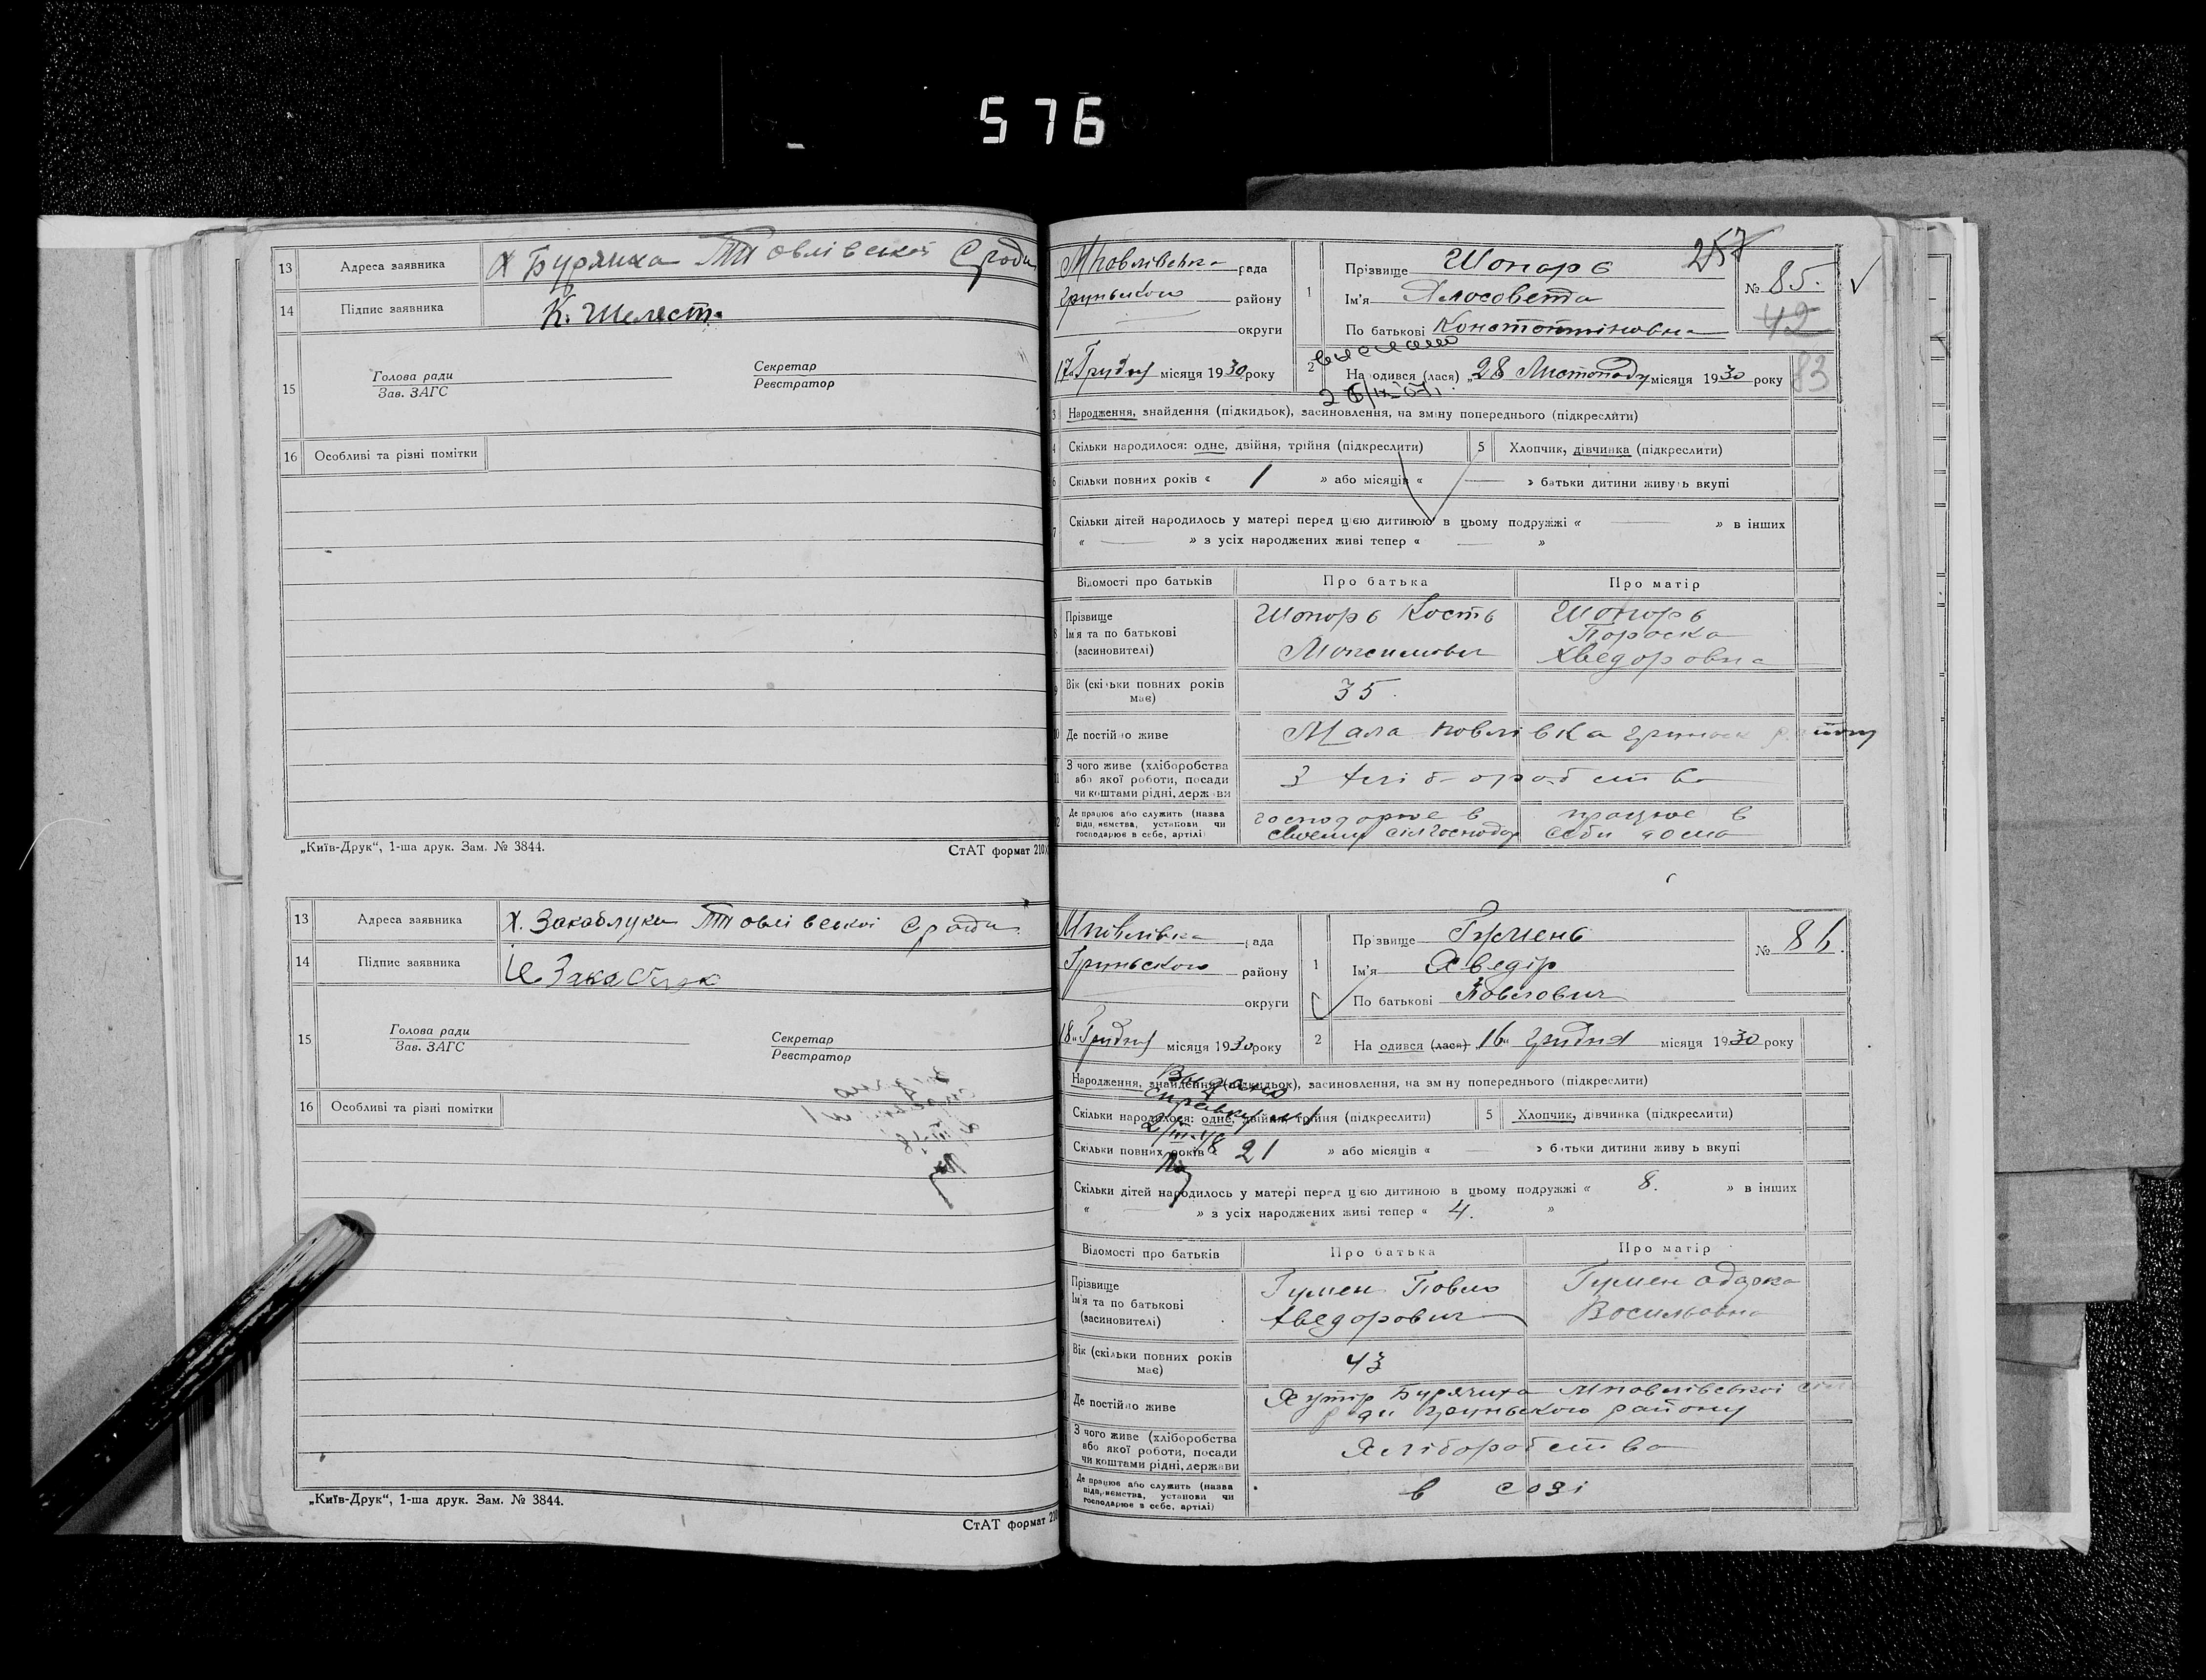 576
13 Адреса заявника
14 Підпис заявника К. Шелест
15 Голова ради Секретар
Зав. ЗАГС Реєстратор
16 Особливі та різні помітки
„Київ-Друк“, 1-ша друк. Зам. № 3844. СтАТ формат 210
13 Адреса заявника
14 Підпис заявника
15 Голова ради Секретар
Зав. ЗАГС Реєстратор
16 Особливі та різні помітки
„Київ-Друк“, 1-ша друк. Зам. № 3844.
СтАТ формат 210
257
рада 1 Прізвище Шопарь № 85.
району Ім'я
42
округи По батькові
17 Грудня місяця 1930 року 2 На одився (лася) „28 Листопаду місяця 1930 року 83
3 Народження, знайдення (підкидьок), засиновлення, на зміну попереднього (підкреслити)
4 Скільки народилося: одне, двійня, трійня (підкреслити) 5 Хлопчик, дівчинка (підкреслити)
6 Скільки повних років « 1 » або місяців « — » батьки дитини живуть вкупі
7 Скільки дітей народилось у матері перед цією дитиною в цьому подружжі « — » в інших
« — » з усіх народжених живі тепер « — »
Відомості про батьків Про батька Про матір
Прізвище Шопарь Кость Шопарь
8 Ім'я та по батькові Пороска
(засиновителі) Моксимович Хведоровна
9 Вік (скільки повних років має) 35.
10 Де постійно живе Мала Повлівка
11 З чого живе (хліборобства
або якої роботи, посади З хліборобства
чи коштами рідні, держави
12 Де працює або служить (назва господорює в працює в
підприємства, установи чи своему сілгосподар себи дома
господарює в себе, артілі)
Мповлівка рада 1 Прізвище Гумень № 86.
Груньского району Ім'я Хведір
округи По батькові Повлович
18 Грудня місяця 1930 року 2 На одився (лася) „16“ Грудня місяця 1930 року
Народження, знайдення (підкидьок), засиновлення, на зміну попереднього (підкреслити)
Видано
справку
Скільки народилося: одне, двійня, трійня (підкреслити) 5 Хлопчик, дівчинка (підкреслити)
Скільки повних років « 21 » або місяців « — » батьки дитини живуть вкупі
Скільки дітей народилось у матері перед цією дитиною в цьому подружжі « 8. » в інших
« — » з усіх народжених живі тепер « 4. »
Відомості про батьків Про батька Про матір
Прізвище Гумен Повло Гумен Одарка
Ім'я та по батькові
(засиновителі) Хведорович Восильовна
Вік (скільки повних років має) 43
Де постійно живе Хутір Бурячиха Мповлівської
ради Груньського району
З чого живе (хліборобства
або якої роботи, посади Хліборобства
чи коштами рідні, держави
Де працює або служить (назва
підприємства, установи чи в созі
господарює в себе, артілі)